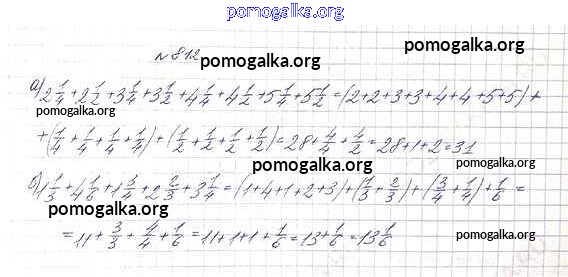 pomogalka.org
pomogalka.org
№812
pomogalka.org
а) 2 1/4 + 2 1/2 + 3 1/4 + 3 1/2 + 4 1/4 + 4 1/2 + 5 1/4 + 5 1/2 = (2+2+3+3+4+4+5+5) +
+ (1/4 + 1/4 + 1/4 + 1/4) + (1/2 + 1/2 + 1/2 + 1/2) = 28 + 4/4 + 4/2 = 28+1+2 = 31
pomogalka.org
pomogalka.org
б) 1 1/3 + 4 1/6 + 1 3/4 + 2 2/3 + 3 1/4 = (1+4+1+2+3) + (1/3 + 2/3) + (3/4 + 1/4) + 1/6 =
pomogalka.org
= 11 + 3/3 + 4/4 + 1/6 = 11+1+1+ 1/6 = 13 + 1/6 = 13 1/6
pomogalka.org
pomogalka.org